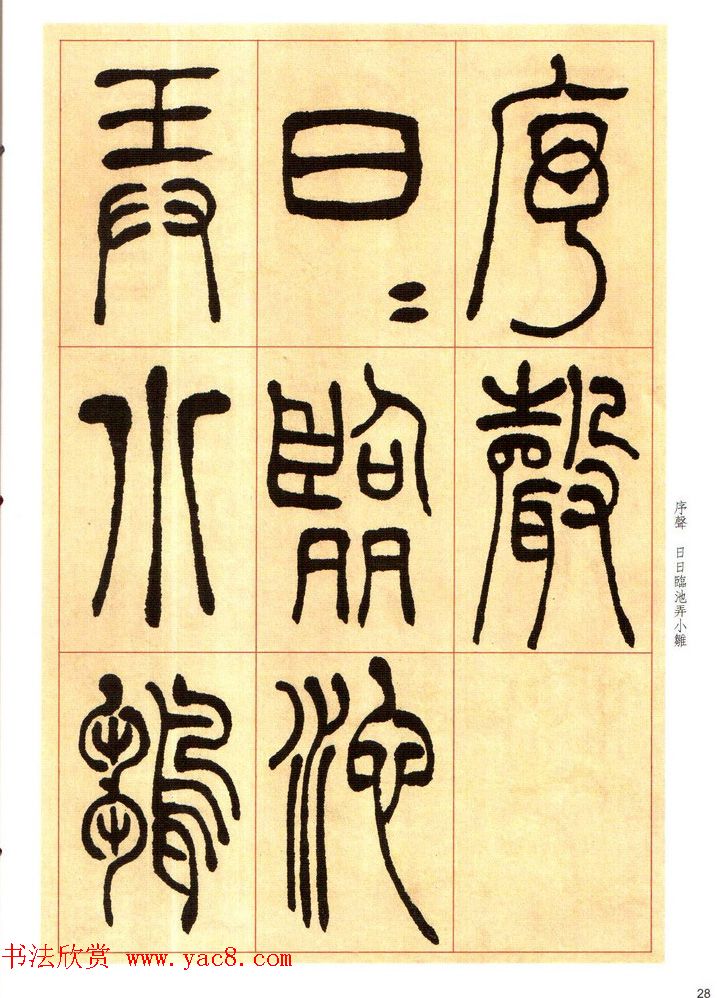 序聲
日〻臨池
弄小雛
序聲 日日臨池弄小雛
书法欣赏 www.yac8.com
28